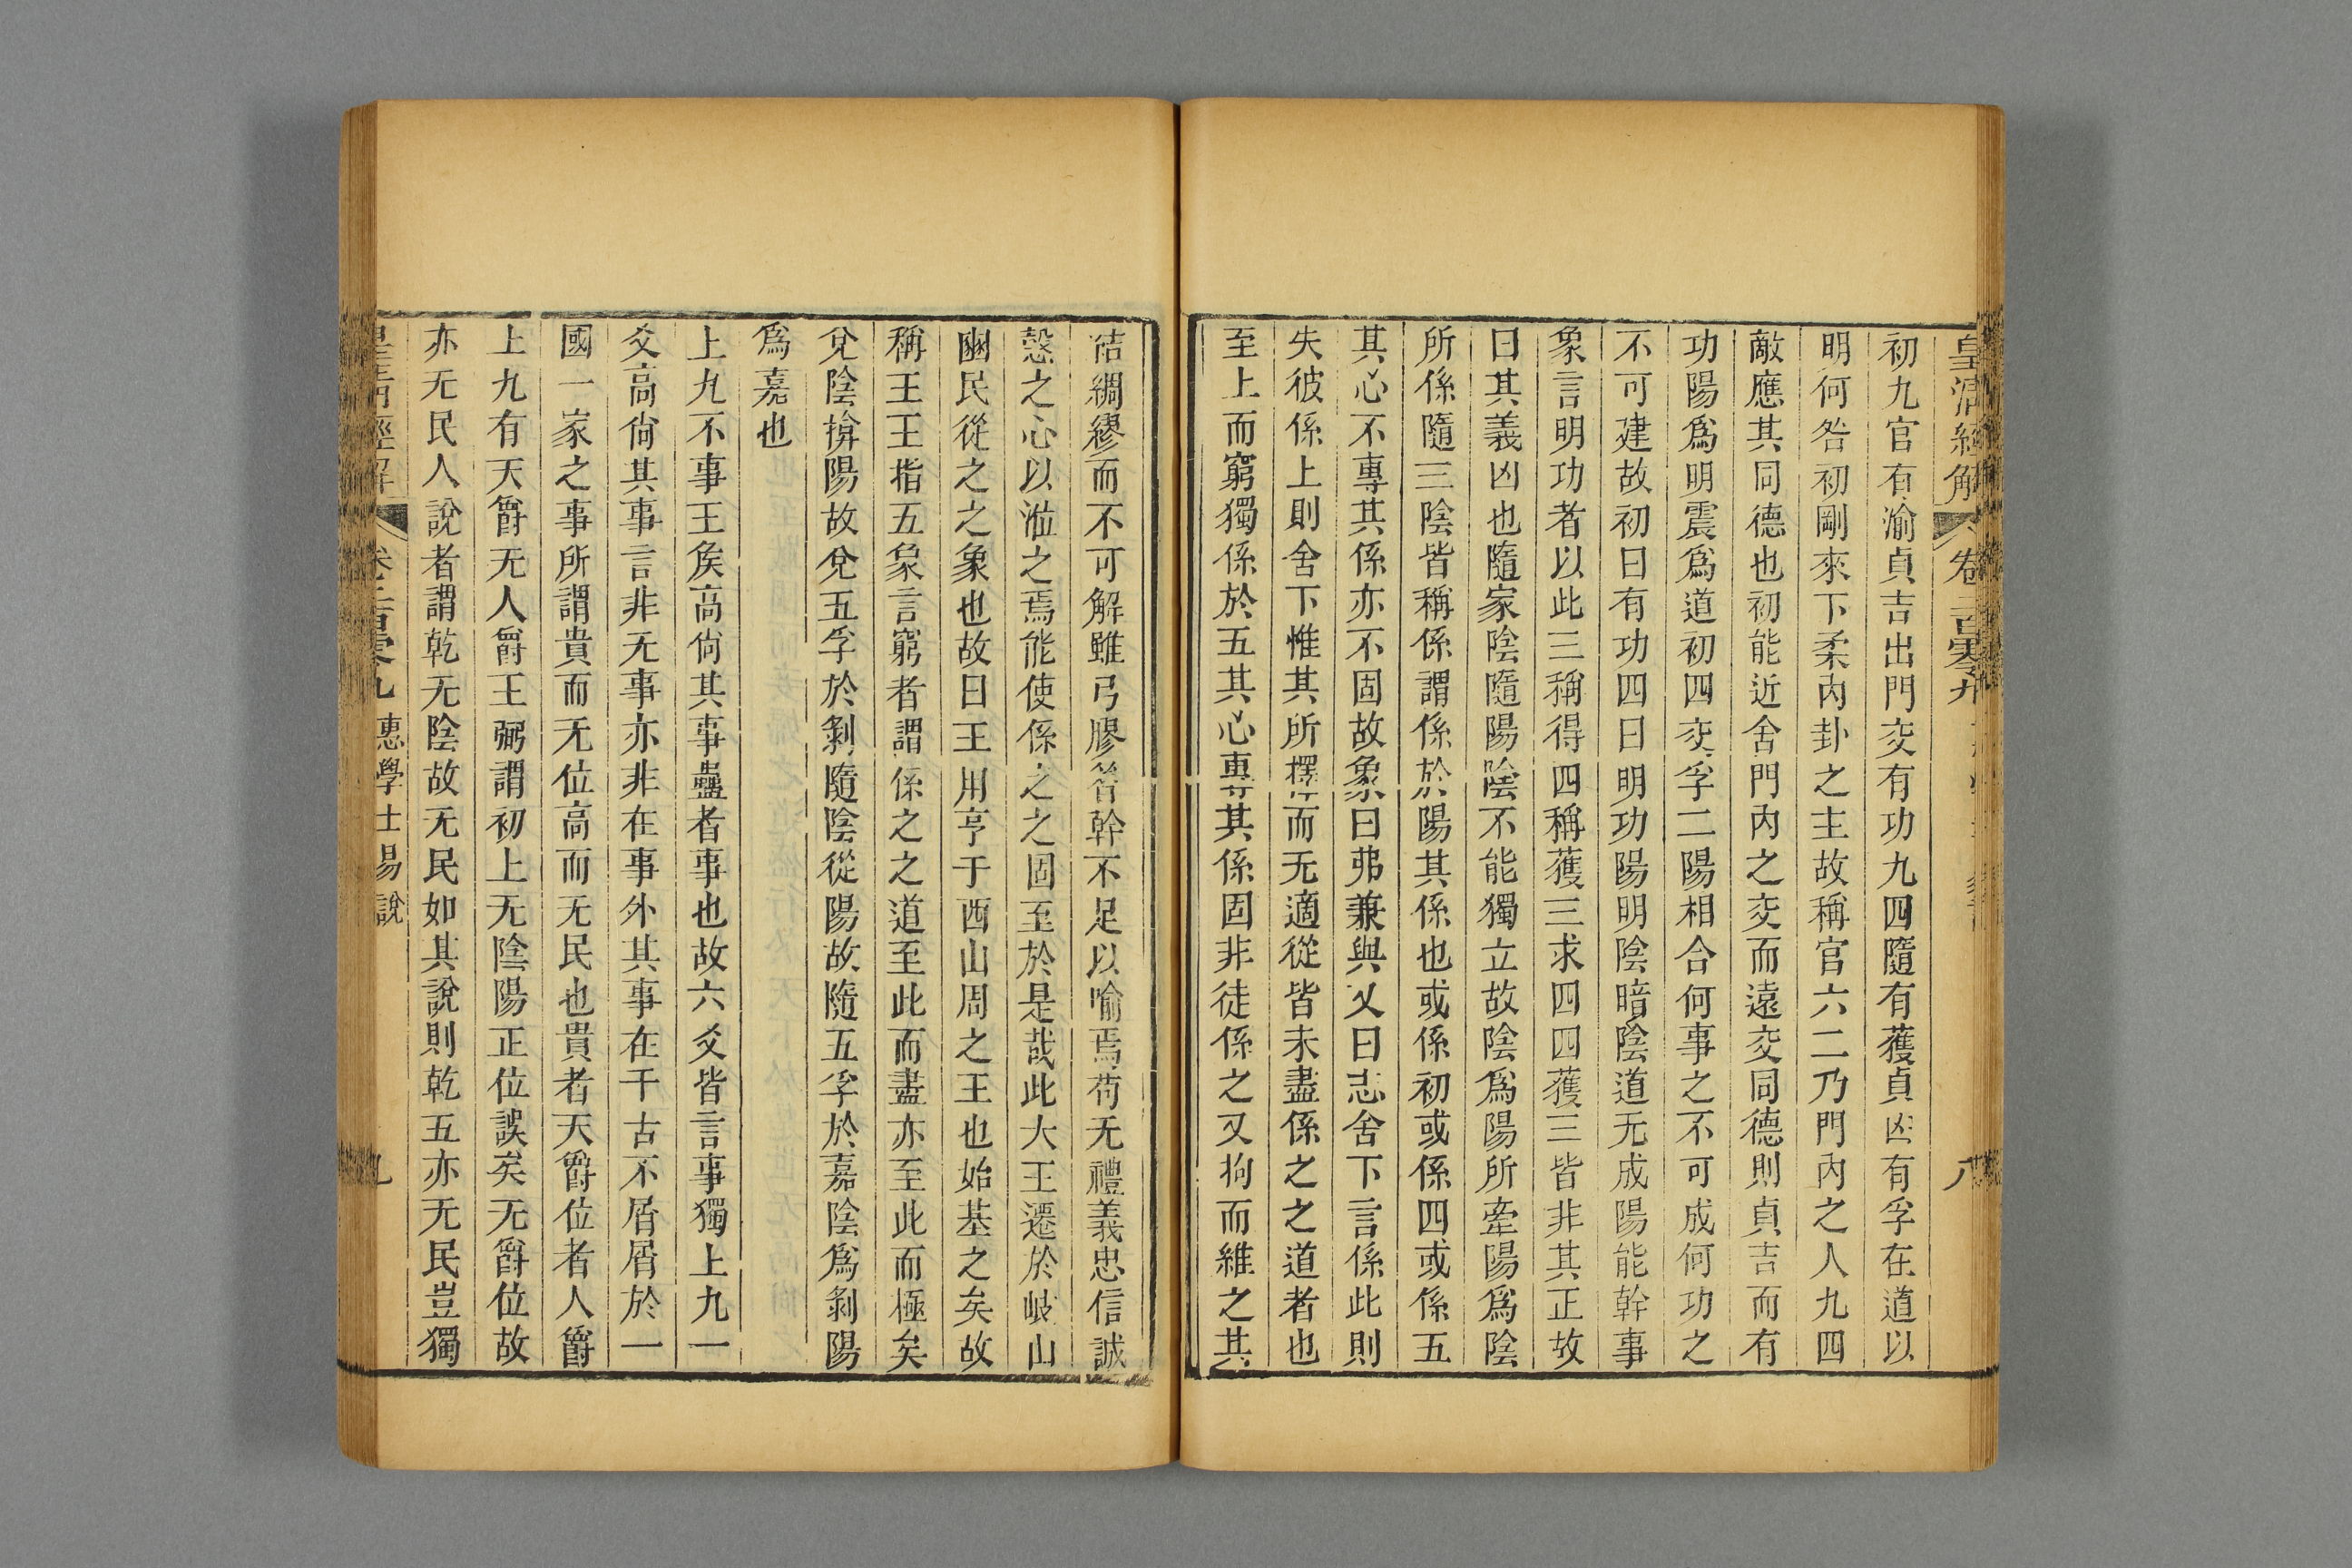 皇清經解
卷二百零九
八
初九官有渝貞吉出門交有功九四隨有獲貞凶有孚在道以
明何咎初剛來下柔內卦之主故稱官六二乃門內之人九四
敵應其同德也初能近舍門內之交而遠交同德則貞吉而有
功陽爲明震爲道初四交孚二陽相合何事之不可成何功之
不可建故初曰有功四曰明功陽明陰暗陰道无成陽能幹事
象言明功者以此三稱得四稱獲三求四四獲三皆非其正故
曰其義凶也隨家陰隨陽陰不能獨立故陰爲陽所牽陽爲陰
所係隨三陰皆稱係謂係於陽其係也或係初或係四或係五
其心不專其係亦不固故象曰弗兼與又曰志舍下言係此則
失彼係上則舍下惟其所擇而无適從皆未盡係之之道者也
至上而窮獨係於五其心專其係固非徒係之又拘而維之其
結綢繆而不可解雖弓膠笴幹不足以喻焉苟无禮義忠信誠
慤之心以涖之焉能使係之之固至於是哉此大王遷於岐山
豳民從之之象也故曰王用亨于西山周之王也始基之矣故
稱王王指五象言窮者謂係之之道至此而盡亦至此而極矣
兌陰揜陽故兌五孚於剝隨陰從陽故隨五孚於嘉陰爲剝陽
爲嘉也
上九不事王矦高尙其事蠱者事也故六爻皆言事獨上九一
爻高尙其事言非无事亦非在事外其事在千古不屑屑於一
國一家之事所謂貴而无位高而无民也貴者天爵位者人爵
上九有天爵无人爵王弼謂初上无陰陽正位誤矣无爵位故
亦无民人說者謂乾无陰故无民如其說則乾五亦无民豈獨
皇淸經解
卷二百零九
惠學士易說
九